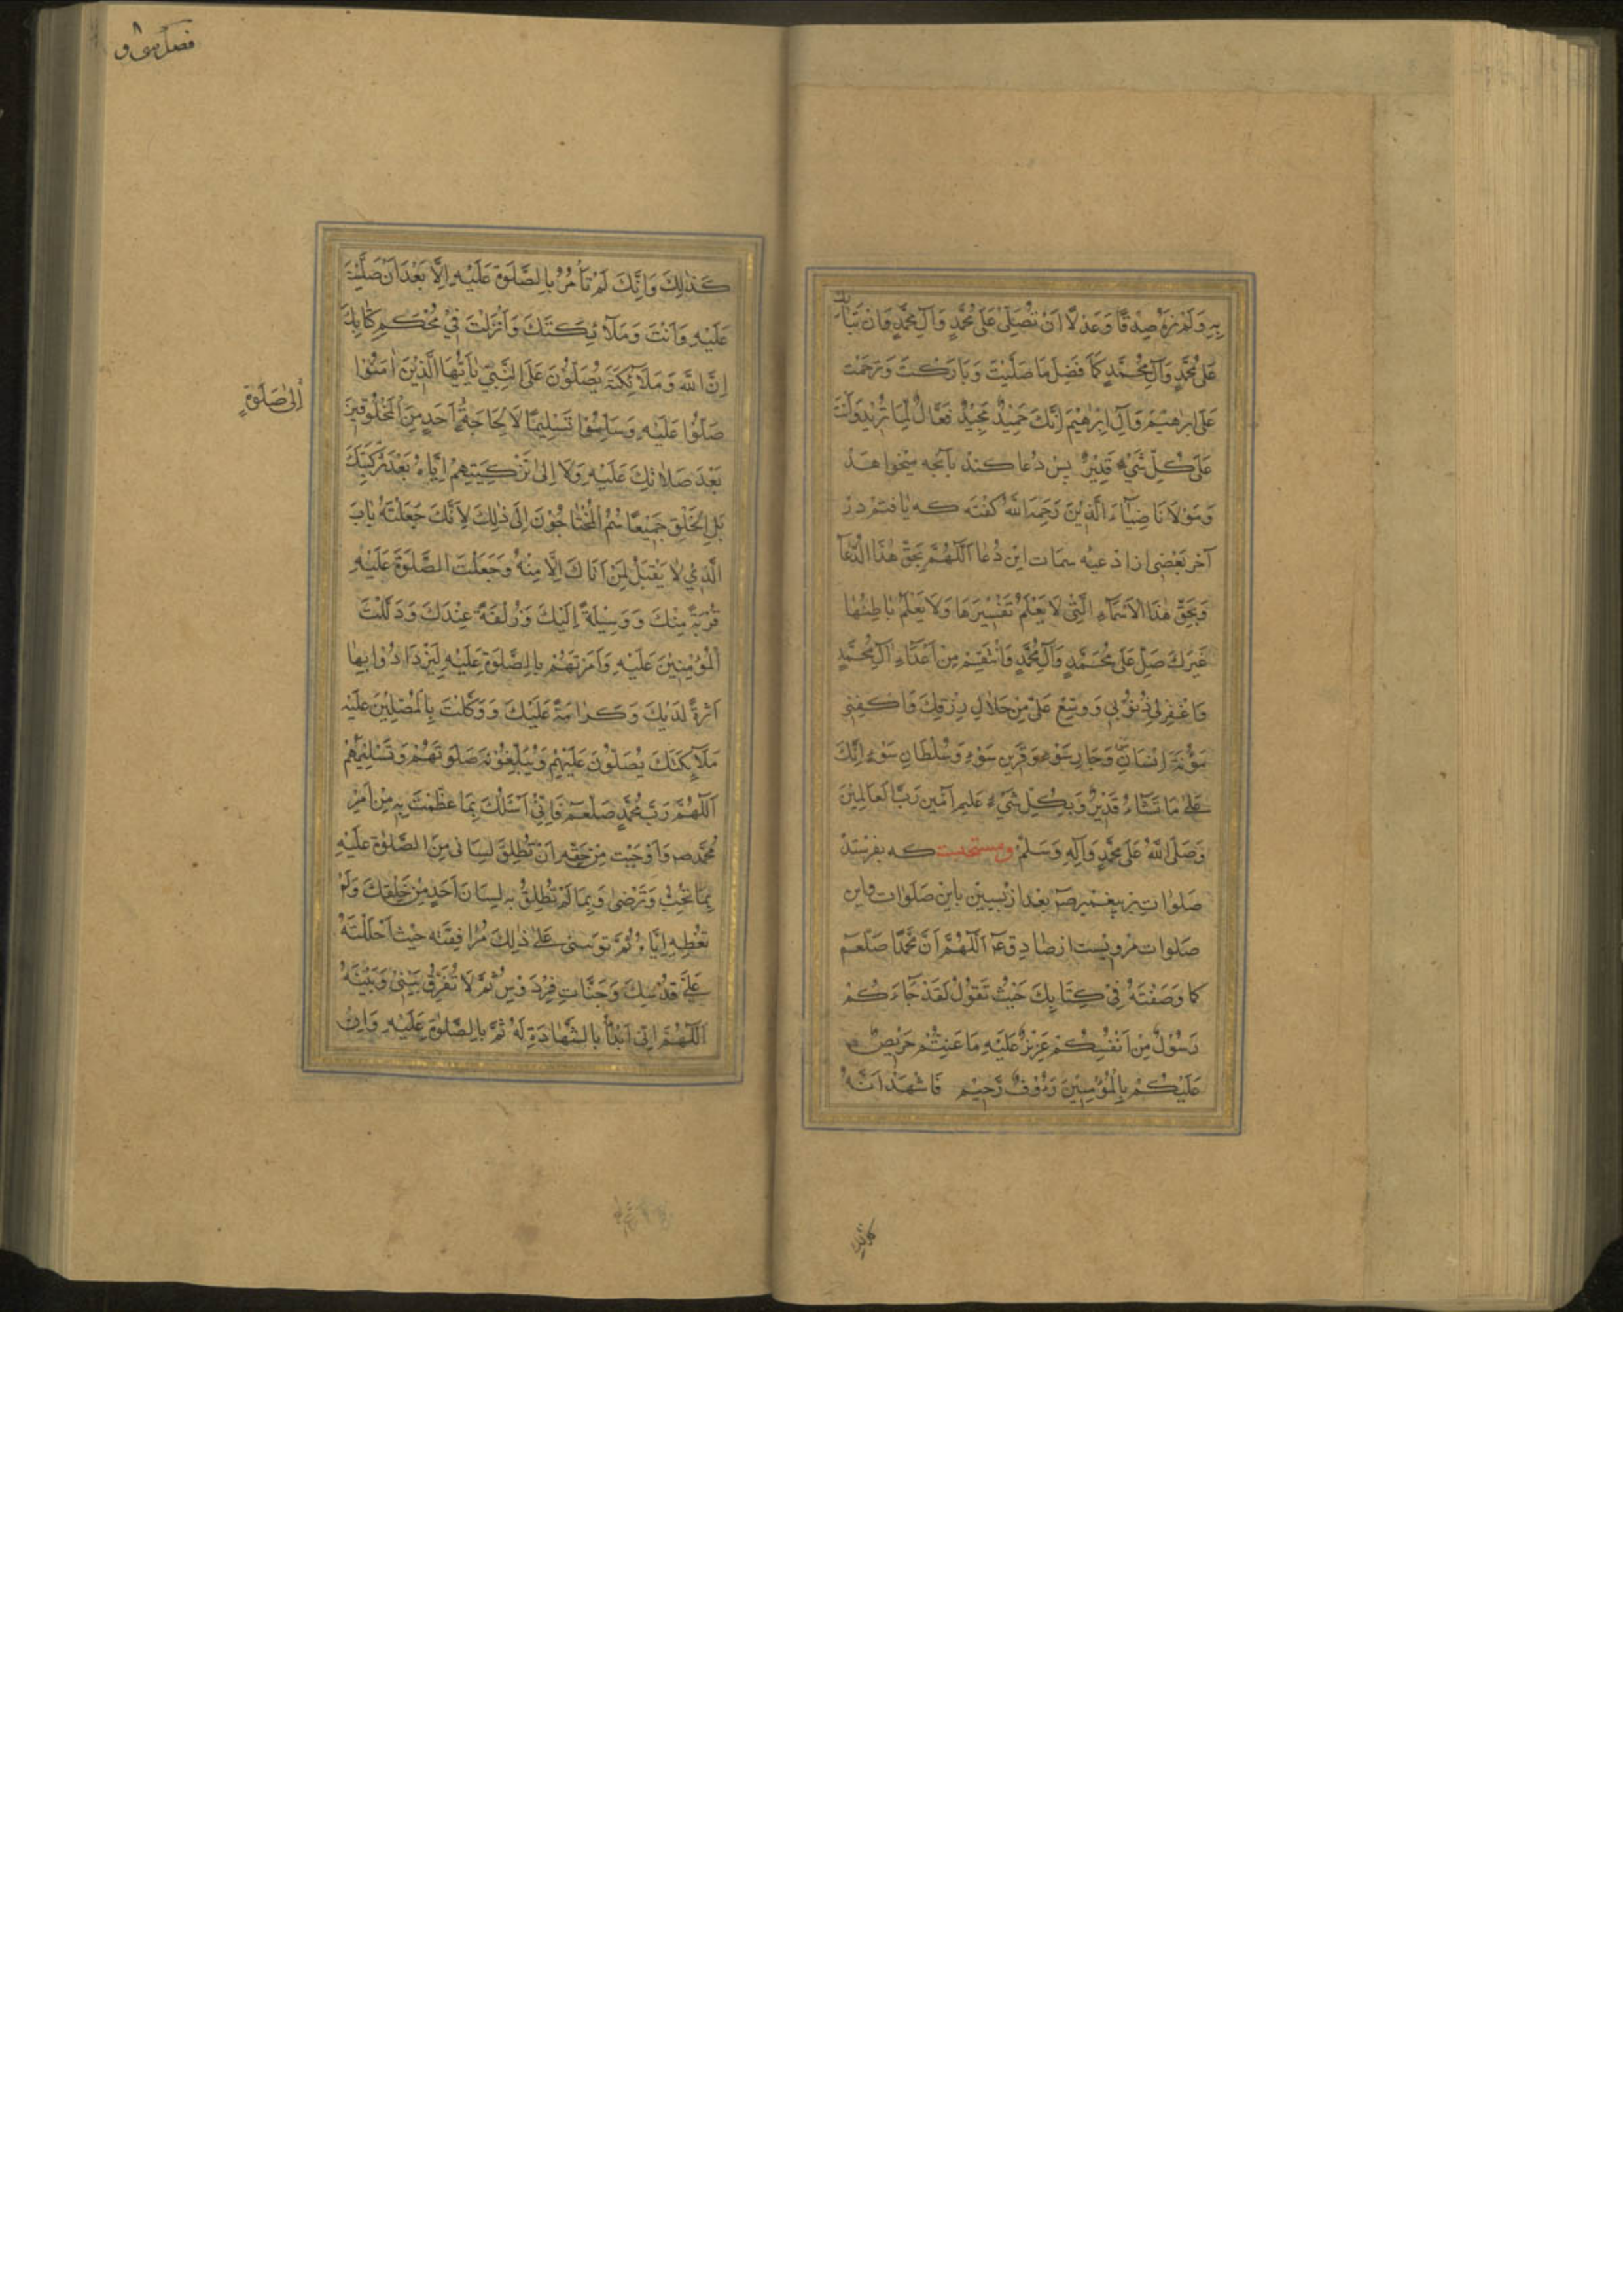 بِهِ وَلَمْ نَرَهُ صِدْقًا وَعَدْلًا اَنْ تُصَلِّىَ عَلٰى مُحَمَّدٍ وَآلِ مُحَمَّدٍ وَاَنْ تُبَارِكَ
عَلٰى مُحَمَّدٍ وَآلِ مُحَمَّدٍ كَاَفْضَلِ مَا صَلَّيْتَ وَبَارَكْتَ وَتَرَحَّمْتَ
عَلٰى اِبْرٰهِيْمَ وَآلِ اِبْرٰهِيْمَ اِنَّكَ حَمِيْدٌ مَجِيْدٌ فَعَّالٌ لِمَا تُرِيْدُ وَاَنْتَ
عَلٰى كُلِّ شَيْءٍ قَدِيْرٌ پس دُعا كند بآنچه ميخواهد
وَمَوْلَانَا ضِيَاءَ الَّدِيْنَ رَحِمَهُ اللّٰهُ گفته كه يافتم در
آخر بَعْضى از ادعيه سمات اين دُعا اَللّٰهُمَّ بِحَقِّ هٰذَا الدُّعَآ
وَبِحَقِّ هٰذَا الْاَسْمَآءِ الَّتِىْ لَا يَعْلَمُ تَفْسِيْرَهَا وَلَا يَعْلَمُ بَاطِنَهَا
غَيْرُكَ صَلِّ عَلٰى مُحَمَّدٍ وَآلِ مُحَمَّدٍ وَانْتَقِمْ مِنْ اَعْدَآءِ آلِ مُحَمَّدٍ
وَاغْفِرْلِىْ ذُنُوْبِىْ وَوَسِّعْ عَلَىَّ مِنْ حَلَالِ رِزْقِكَ وَاكْفِنِىْ
مَؤُنَةَ اِنْسَانِ سَوْءٍ وَجَارِ سَوْءٍ وَقَرِيْنِ سَوْءٍ وَسُلْطَانِ سَوْءٍ اِنَّكَ
عَلٰى مَا تَشَآءُ قَدِيْرٌ وَبِكُلِّ شَيْءٍ عَلِيْمٌ آمِيْنَ رَبَّ الْعَالَمِيْنَ
وَصَلَّى اللّٰهُ عَلٰى مُحَمَّدٍ وَآلِهِ وَسَلَّمْ ومستحبست كه بفرستد
صلوات بر پيغمبر ص بعد از پسين باين صلوات واين
صلوات مرويست از صادق ع اَللّٰهُمَّ اَنَّ مُحَمَّدًا صَلْعَمْ
كَمَا وَصَفْتَهُ فِىْ كِتَابِكَ حَيْثُ تَقُوْلُ لَقَدْ جَآءَكُمْ
رَسُوْلٌ مِنْ اَنْفُسِكُمْ عَزِيْزٌ عَلَيْهِ مَا عَنِتُّمْ حَرِيْصٌ
عَلَيْكُمْ بِالْمُؤْمِنِيْنَ رَؤُوْفٌ رَّحِيْم فَاَشْهَدُ اَنَّهُ
كذلك
كَذٰلِكَ وَاِنَّكَ لَمْ تَأْمُرْ بِالصَّلٰوةِ عَلَيْهِ اِلَّا بَعْدَ اَنْ صَلَّيْتَ
عَلَيْهِ وَاَنْتَ وَمَلَآئِكَتُكَ وَاَنْزَلْتَ فِىْ مُحْكَمِ كِتَابِكَ
اِنَّ اللّٰهَ وَمَلَآئِكَتَهُ يُصَلُّوْنَ عَلَى النَّبِىِّ يَا اَيُّهَا الَّذِيْنَ اٰمَنُوْا
صَلُّوْا عَلَيْهِ وَسَلِّمُوْا تَسْلِيْمًا لَا لِحَاجَةٍ اَحَدٍ مِنَ الْمَخْلُوْقِيْنَ
اِلٰى صَلٰوةٍ
بَعْدَ صَلَاتِكَ عَلَيْهِ وَلَا اِلٰى تَزْكِيَتِهِمْ اِيَّاهُ بَعْدَ تَزْكِيَتِكَ
بَلِ الْخَلْقُ جَمِيْعًا هُمُ الْمُحْتَاجُوْنَ اِلٰى ذٰلِكَ لِاَنَّكَ جَعَلْتَهُ بَابَكَ
الَّذِىْ لَا يَقْبَلُ لِمَنْ اَتَاكَ اِلَّا مِنْهُ وَجَعَلْتَ الصَّلٰوةَ عَلَيْهِ
قُرْبَةً مِنْكَ وَوَسِيْلَةً اِلَيْكَ وَزُلْفَةً عِنْدَكَ وَدَلَلْتَ
الْمُؤْمِنِيْنَ عَلَيْهِ وَاَمَرْتَهُمْ بِالصَّلٰوةِ عَلَيْهِ لِيَزْدَادُوْا بِهَا
اَثَرَةً لَدَيْكَ وَكَرَامَةً عَلَيْكَ وَوَكَّلْتَ بِالْمُصَلِّيْنَ عَلَيْهِ
مَلَآئِكَتَكَ يُصَلُّوْنَ عَلَيْهِمْ وَيُبَلِّغُوْنَهُ صَلٰوتَهُمْ وَتَسْلِيْمَهُمْ
اَللّٰهُمَّ رَبَّ مُحَمَّدٍ صَلْعَمْ فَاِنِّىْ اَسْئَلُكَ بِمَا عَظَّمْتَ بِهِ مِنْ اَمْرِ
مُحَمَّدٍ ص وَاَوْجَبْتَ مِنْ حَقِّهِ اَنْ تُطْلِقَ لِسَانِى مِنَ الصَّلٰوةِ عَلَيْهِ
بِمَا تُحِبُّ وَتَرْضٰى وَبِمَا لَمْ تُطْلِقْ بِهِ لِسَانَ اَحَدٍ مِنْ خَلْقِكَ وَلَمْ
تُعْطِهِ اِيَّاهُ ثُمَّ تُؤْتِيَنِىْ عَلٰى ذٰلِكَ مُرَافَقَتَهُ حَيْثُ اَحْلَلْتَهُ
عَلٰى قُدْسِكَ وَجَنَّاتِ فِرْدَوْسِ ثُمَّ لَا تُفَرِّقْ بَيْنِىْ وَبَيْنَهُ
اَللّٰهُمَّ اِنِّىْ اَبْدَأُ بِالشَّهَادَةِ لَهُ ثُمَّ بِالصَّلٰوةِ عَلَيْهِ وَاِنْ